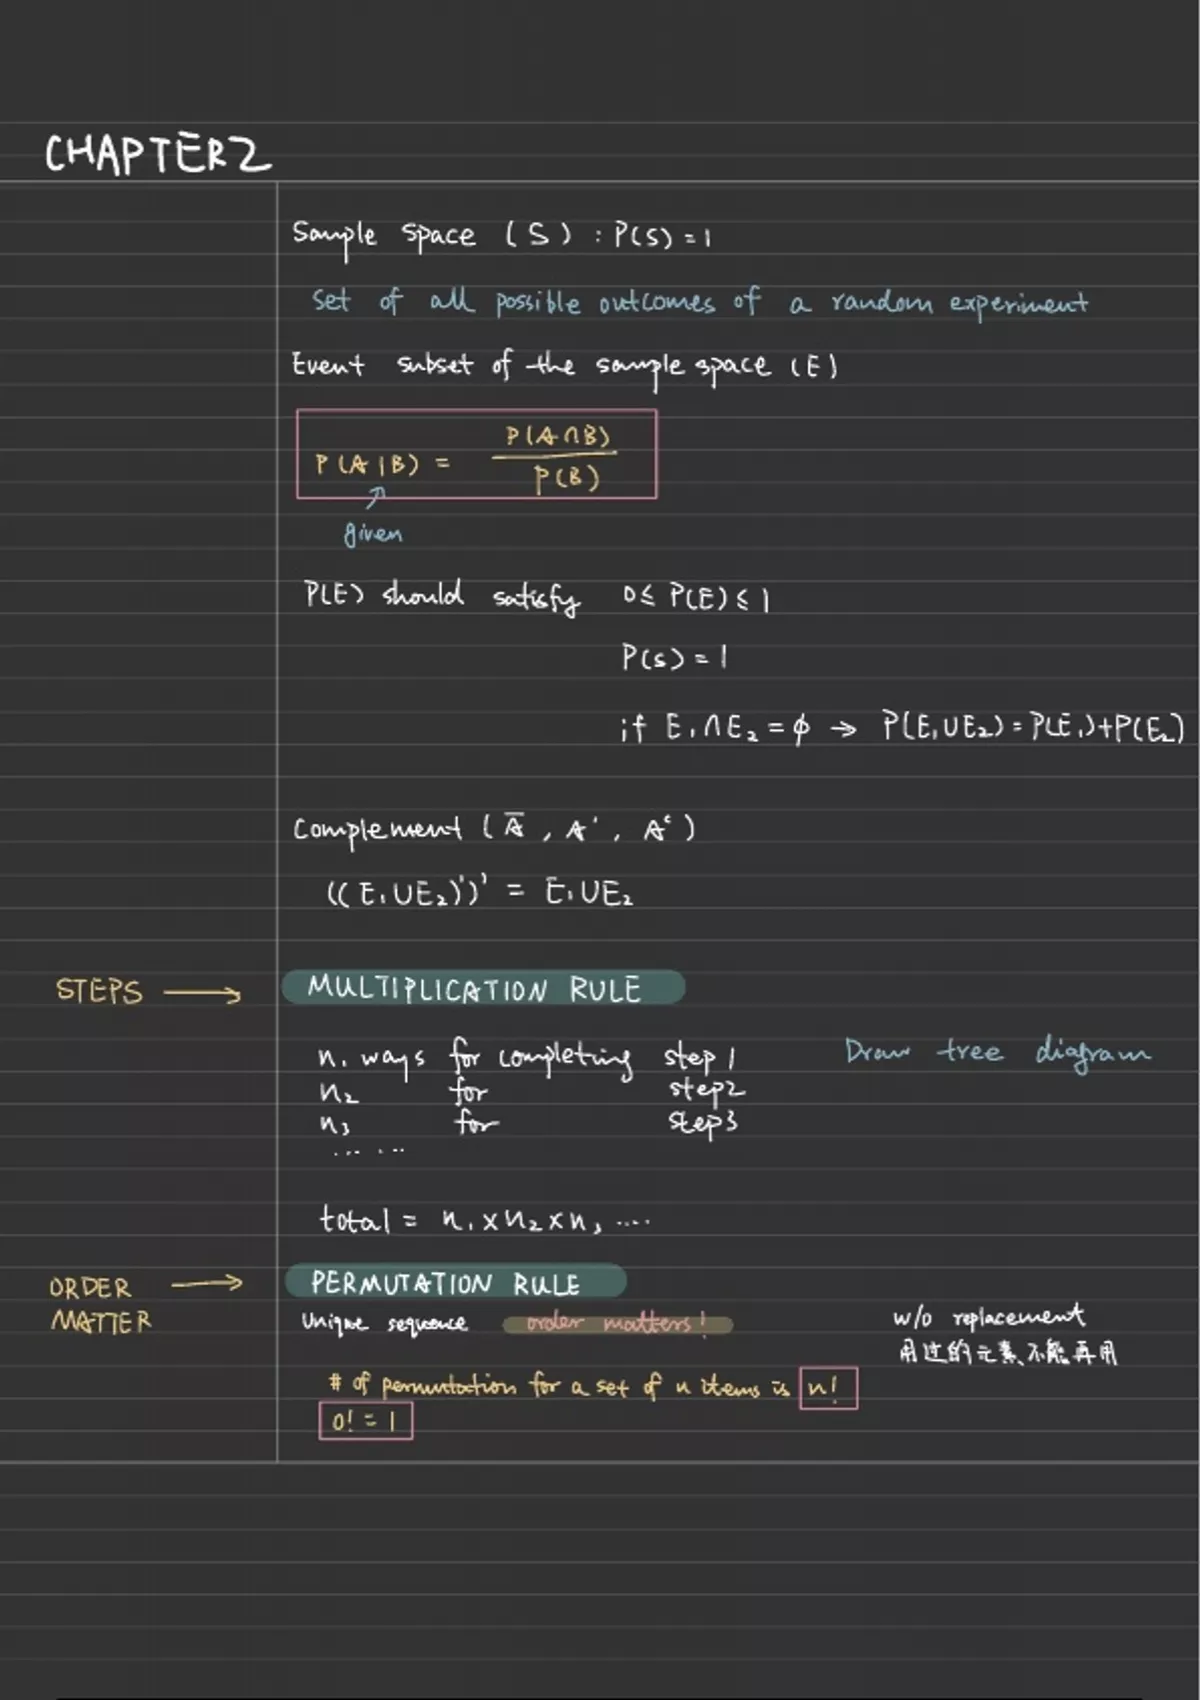 CHAPTER2
Sample space (S) : P(S) = 1
set of all possible outcomes of a random experiment
Event subset of the sample space (E)
P(A|B) = P(A∩B) / P(B)
given
P(E) should satisfy 0≤ P(E) ≤ 1
P(s) = 1
if E₁∩E₂ = ϕ → P(E₁∪E₂) = P(E₁)+P(E₂)
Complement (A̅, A', Aᶜ)
((E₁∪E₂)')' = E₁∪E₂
STEPS → MULTIPLICATION RULE
n₁ ways for completing step 1 Draw tree diagram
n₂ for step2
n₃ for step3
......
total = n₁×n₂×n₃ ....
ORDER → PERMUTATION RULE
MATTER Unique sequence order matters! w/o replacement
用过的元素不能再用
# of permutation for a set of n items is n!
0! = 1